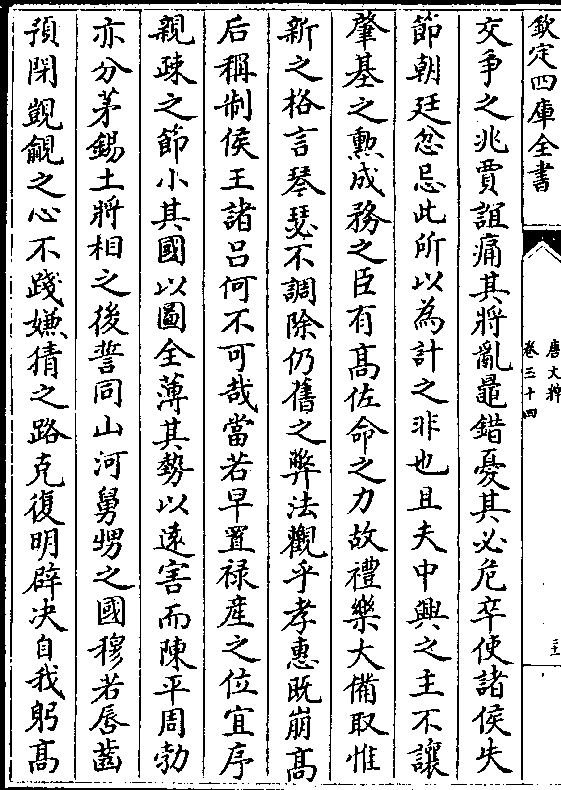 欽定四庫全書
唐文粹
卷三十四
交爭之兆賈誼痛其將亂鼂錯憂其必危卒使諸侯失
節朝廷忿忌此所以為計之非也且夫中興之主不讓
肇基之勲成務之臣有髙佐命之力故禮樂大備取惟
新之格言琴瑟不調除仍舊之弊法觀乎孝惠既崩髙
后稱制侯王諸吕何不可哉當若早置禄産之位宜序
親疎之節小其國以圖全薄其勢以逺害而陳平周勃
亦分茅錫土將相之後誓同山河舅甥之國穆若唇齒
預閉覬覦之心不踐嫌猜之路克復明辟决自我躬髙